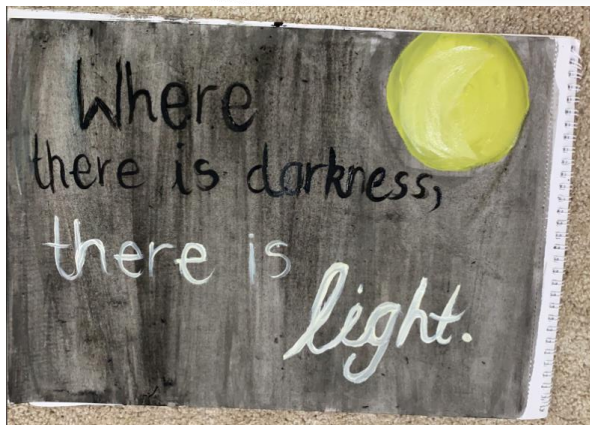 Where
there is darkness,
there is
light.